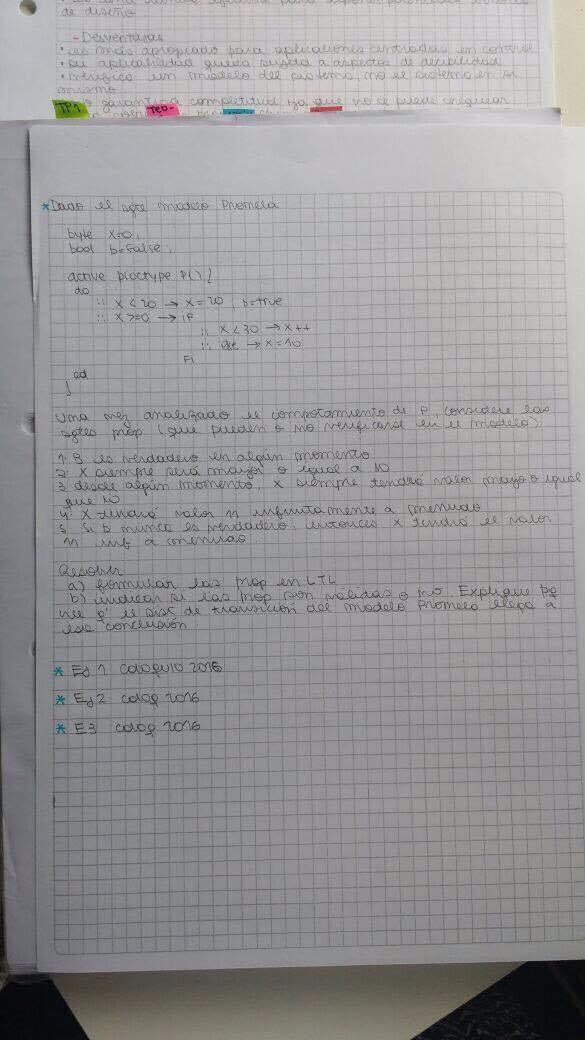 de diseño
- Desventajas
• es más apropiado para aplicaciones centradas en control
• su aplicabilidad queda sujeta a aspectos de decibilidad
• verifico un modelo del sistema, no el sistema en sí
mismo
garantiza completitud ya que no se puede chequear
TP1 Teo-
* Dado el sgte modelo Promela
byte x=0;
bool b=False;
active proctype P() {
do
:: x < 20 → x = 20, b=true
:: x >= 0 → IF
:: x < 30 → x++
:: else → x = 10
Fi
od
}
Una vez analizado el comportamiento de P, considere las
sgtes prop (que pueden o no verificarse en el modelo)
1. B es verdadero en algún momento
2. X siempre será mayor o igual a 10
3. desde algún momento, x siempre tendrá valor mayor o igual
que 10
4. X tendrá valor 11 infinitamente a menudo
5. Si b nunca es verdadero, entonces x tendrá el valor
11 inf a menudo.
Resolver
a) formular las prop en LTL
b) indicar si las prop son válidas o no. Explique por
que q' el sist de transición del modelo Promela llega a
esa conclusión.
* Ej 1 coloquio 2016
* Ej 2 coloq 2016
* E3 coloq 2016